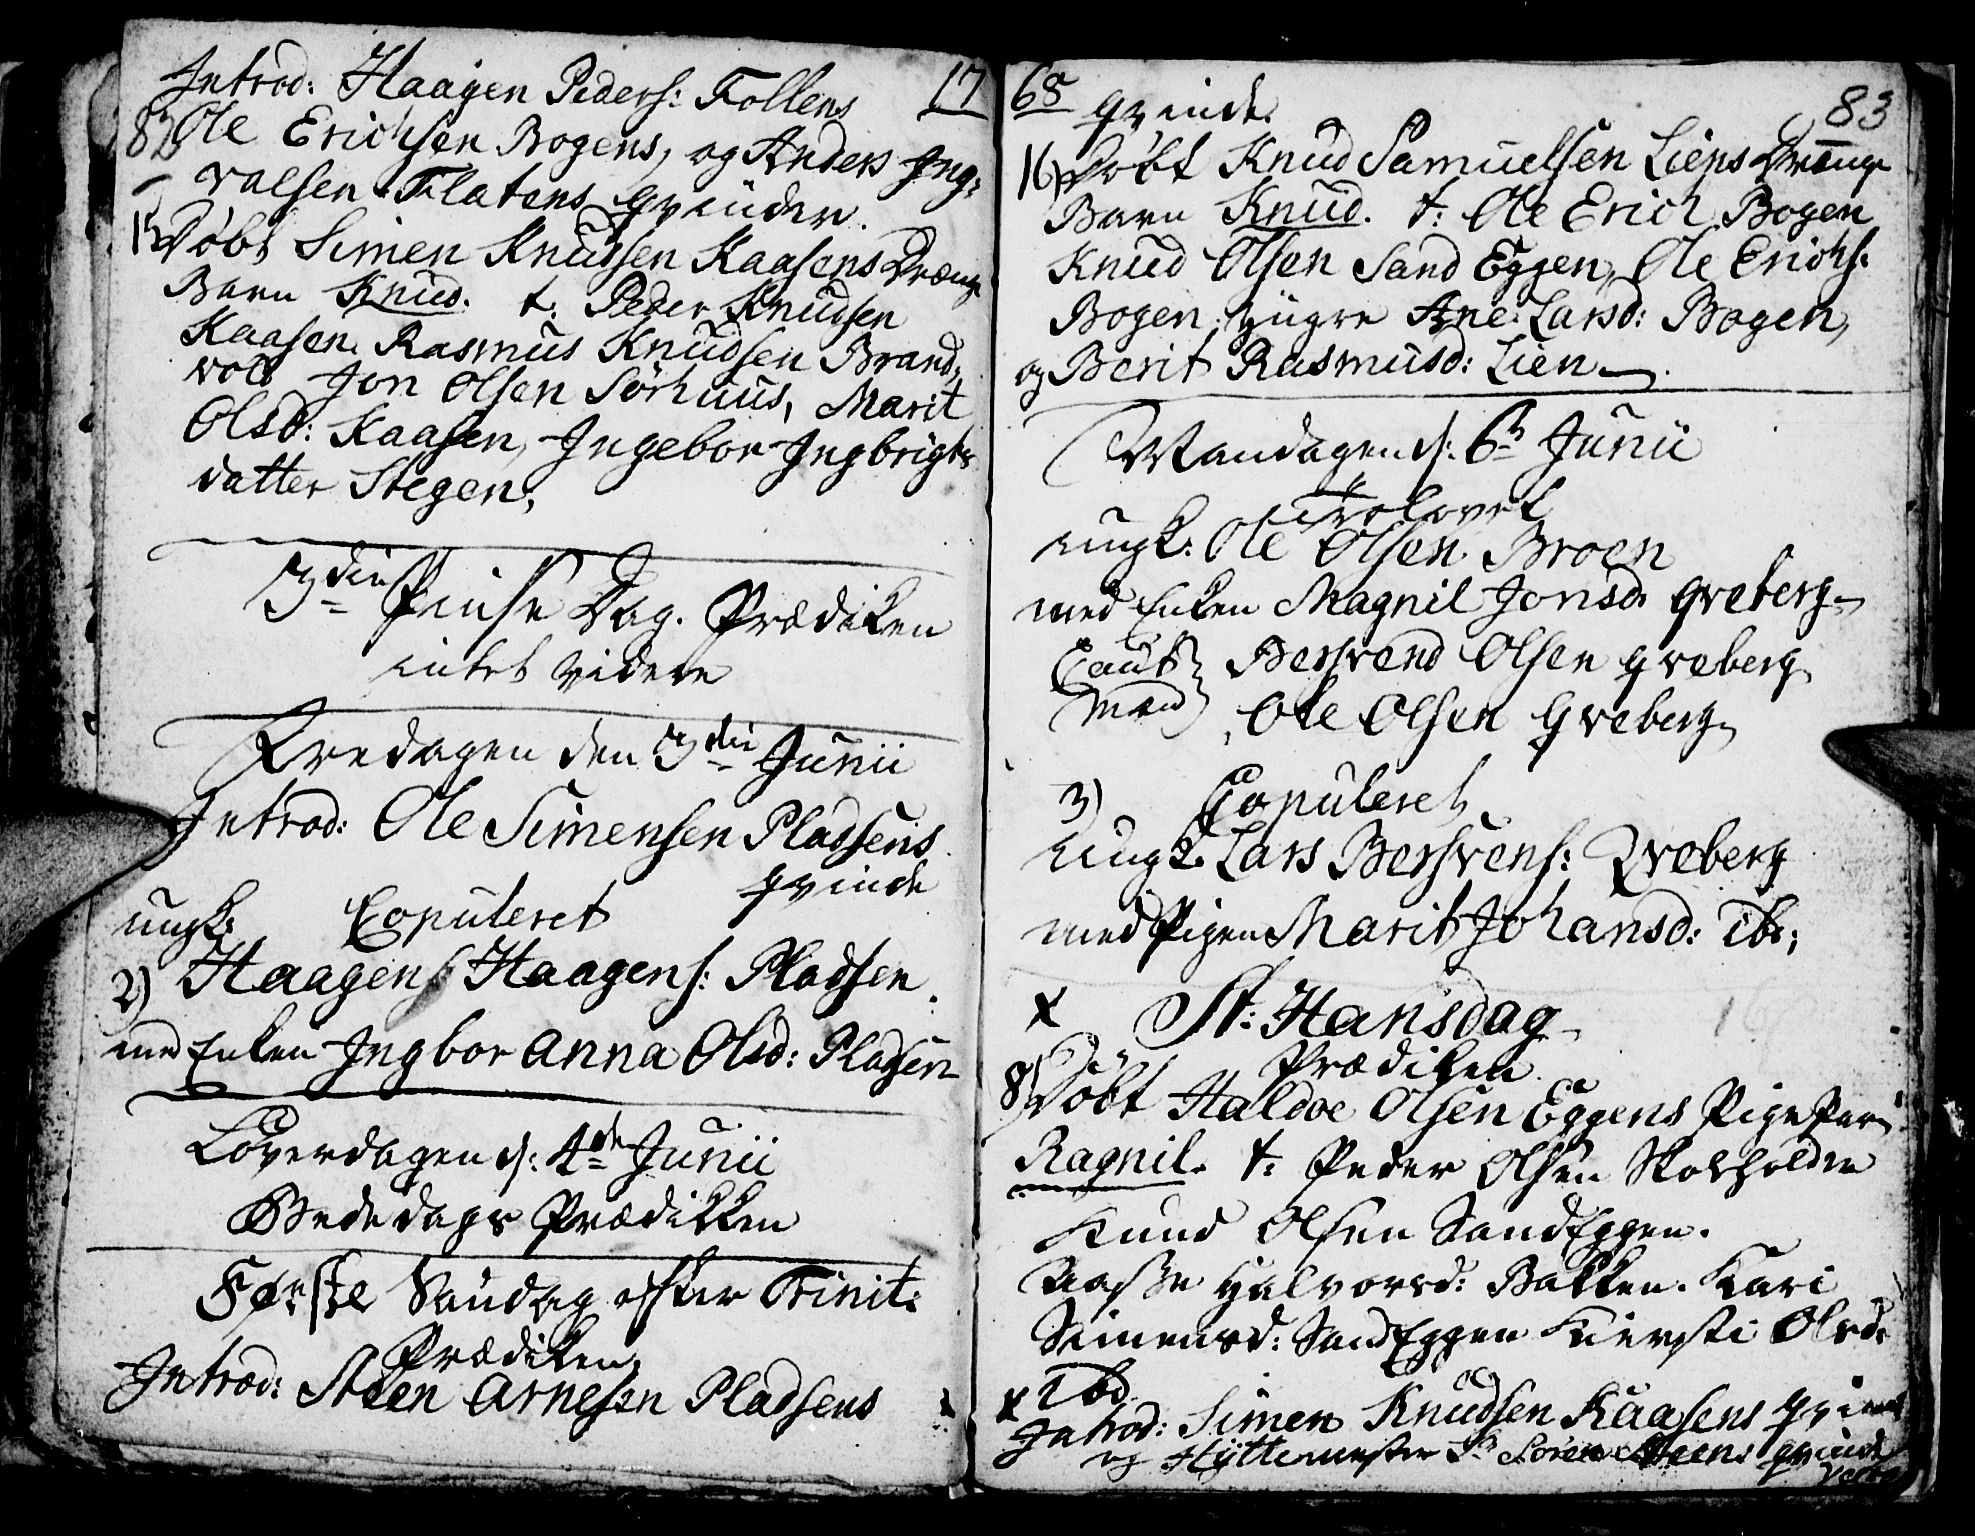 Introd: Haagen Peders: Follens 17
82 Ole Erichsen Bogens, og Anders Ing-
valsen Flatens qvinder.
15) Döbt Simen Knudsen Kaasens Drænge
Barn Knud. t: Peder Knudsen
Kaasen. Rasmus Knudsen Brand-
vold Jon Olsen Sörhuus, Marit
Olsd: Kaasen, Ingebor Ingbrigts
datter Stegen,
3die Pintse Dag. Prædiken
intet videre
Fredagen den 3die Junii
Introd: Ole Simensen Pladsens
qvinde
ungk: Copuleret
2) Haagen Haagens: Pladsen
med Enken Ingbor Anna Olsd: Pladsen
Löverdagen d: 4de Junii
Bededags Prædikken
Første Sundag efter Trinit:
Prædiken
Introd: Steen Arnesen Pladsens
68 qvinde. 83
16) Döbt Knud Samuelsen Liens Drænge
Barn Knud. t: Ole Erich Bogen
Knud Olsen Sand Eggen, Ole Erichs:
Bogen. Ane Larsd: Bogen,
og Berit Rasmusd: Lien.
Mandagen d: 6te Junii
Trolovet
ungk: Ole Olsen Broen
med Enken Magnil Jonsd. Qveberg
Caut Bersvend Olsen Qveberg
mænd Ole Olsen Qveberg
3) Copuleret
ungk. Lars Bersvens: Qveberg
med Pigen Marit Johansd: ib:
x St: Hansdag
Prædiken
8) Döbt Haldoe Olsen Eggens Pige
Ragnil. t: Peder Olsen
Knud Olsen SandEggen.
Halvorsd: Bakken. Kari
Simensd: SandEggen Kiersti Olsd:
ibd.
x Introd: Simen Knudsen Kaasens qvinde
og Hyttemester Sr Sören Steens qvinde